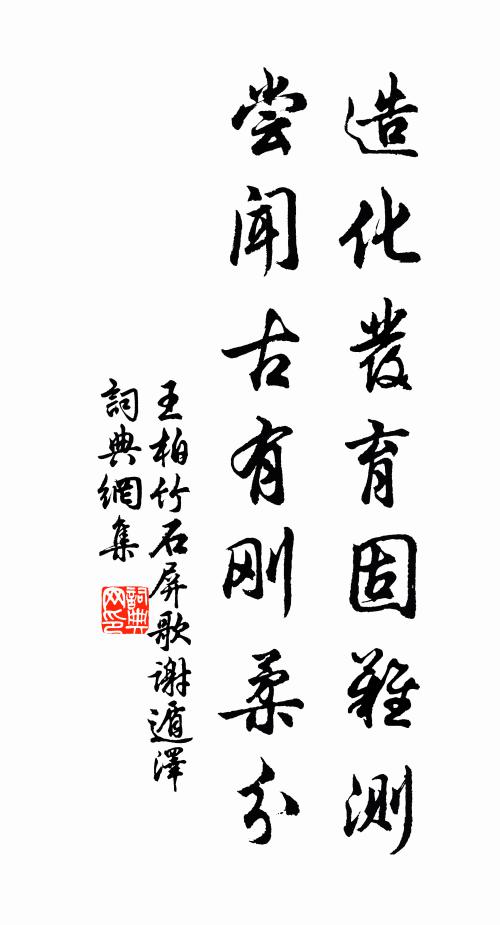 造化發育固難測
嘗聞古有剛柔分
王柏竹石屏歌謝遁澤
詞典網集
詞典網印